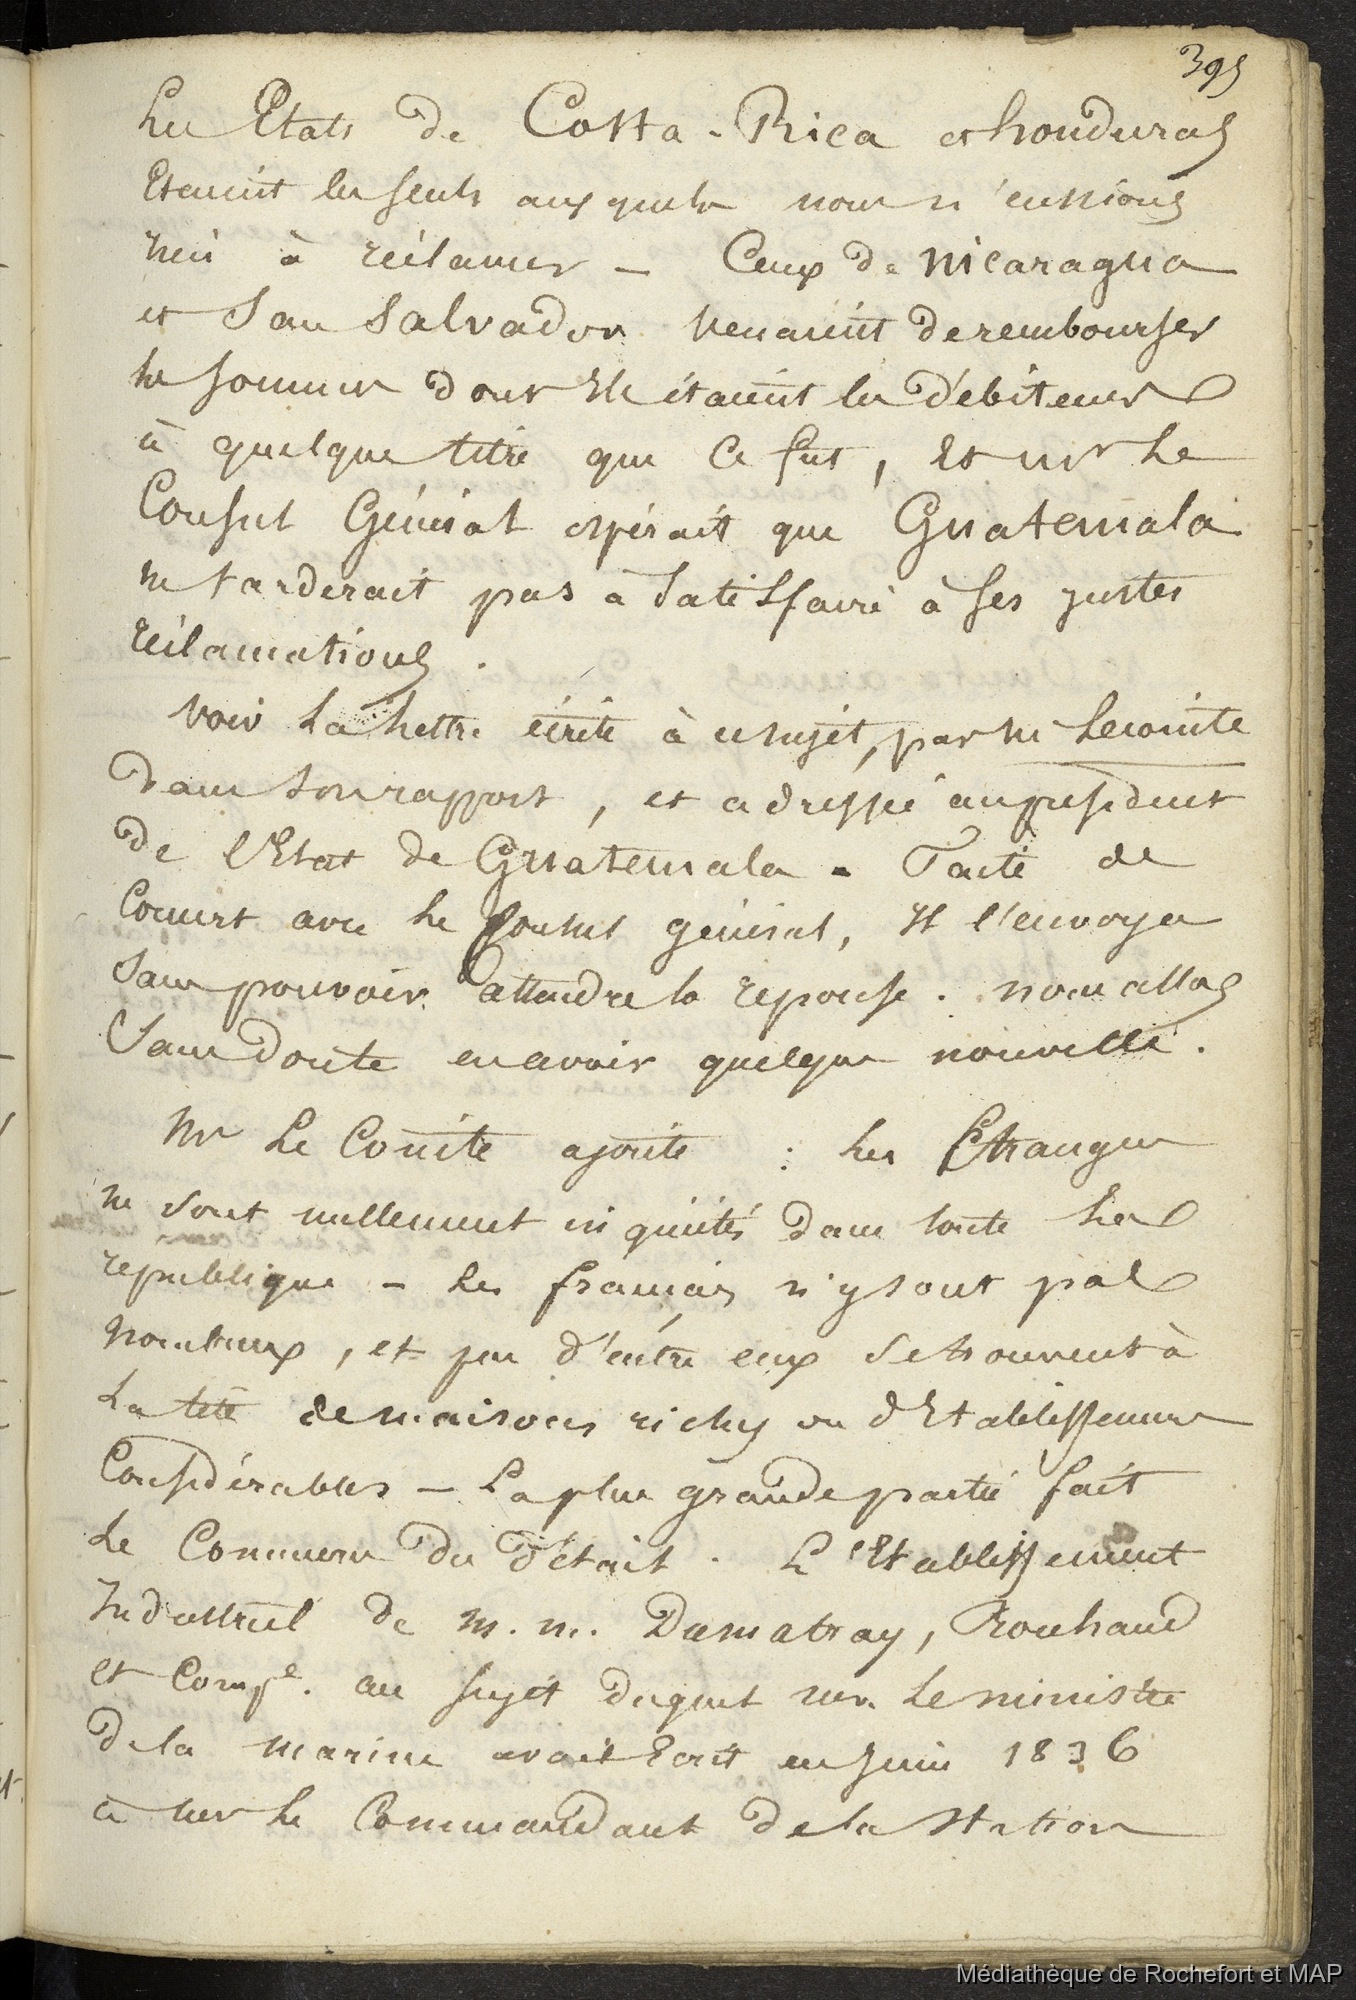 395
Les Etats de Costa-Rica et honduras
Etaient les seuls auxquels nous n'eussions
rien à réclamer – Ceux de Nicaragua
et San Salvador venaient de rembourser
les sommes dont Ils étaient les débiteurs
à quelque titre que ce fut, Et Mr Le
Consul Général espérait que Guatemala
ne tarderait pas à Satisfaire à ses justes
réclamations.
Voir La lettre écrite à ce sujet, par Mr Lecointe
dans Son rapport, et adressée au president
de l'Etat de Guatemala - Faite de
Concert avec Le Consul général, Il l'envoya
Sans pouvoir attendre la reponse. nous allons
Sans doute en avoir quelque nouvelle.
Mr Le Cointe ajoute : Les Etrangers
ne sont nullement inquiétés dans toute La
republique – Les français n'y sont pas
nombreux, et peu d'entre eux se trouvent à
La tête de maisons riches ou d'Etablissements
Considérables – La plus grande partie fait
Le Commerce du détail. L'Etablissement
Industriel de M. M. Damatray, Rouhaud
et Compe. au sujet duquel Mr. Le ministre
de la marine avait Ecrit en Juin 1836
à Mr Le Commandant de la Station
Médiathèque de Rochefort et MAP